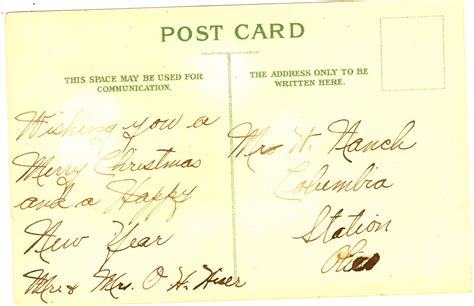 POST CARD
THIS SPACE MAY BE USED FOR
COMMUNICATION.
Wishing you a
Merry Christmas
and a Happy
New Year
Mr. & Mrs. O H. Hiser
THE ADDRESS ONLY TO BE
WRITTEN HERE.
Mrs H. Hanch
Columbia
Station
Ohio